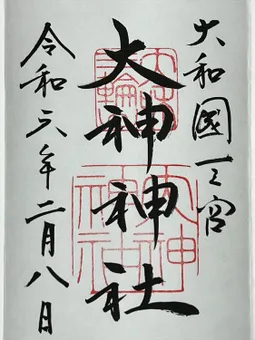 大和國一之宮
大神神社
令和六年二月八日
大神
神社